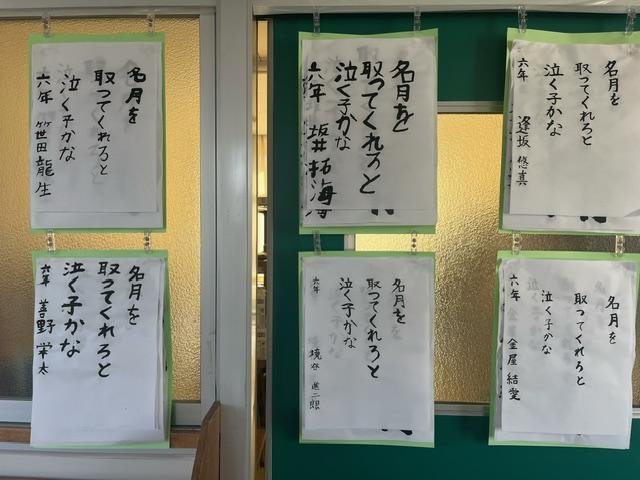 名月を
取ってくれろと
泣く子かな
六年 笹田龍生
名月を
取ってくれろと
泣く子かな
六年 坂井拓海
名月を
取ってくれろと
泣く子かな
六年 逢坂悠真
名月を
取ってくれろと
泣く子かな
六年 善野栄太
名月を
取ってくれろと
泣く子かな
六年 境谷進二郎
名月を
取ってくれろと
泣く子かな
六年 金屋結愛